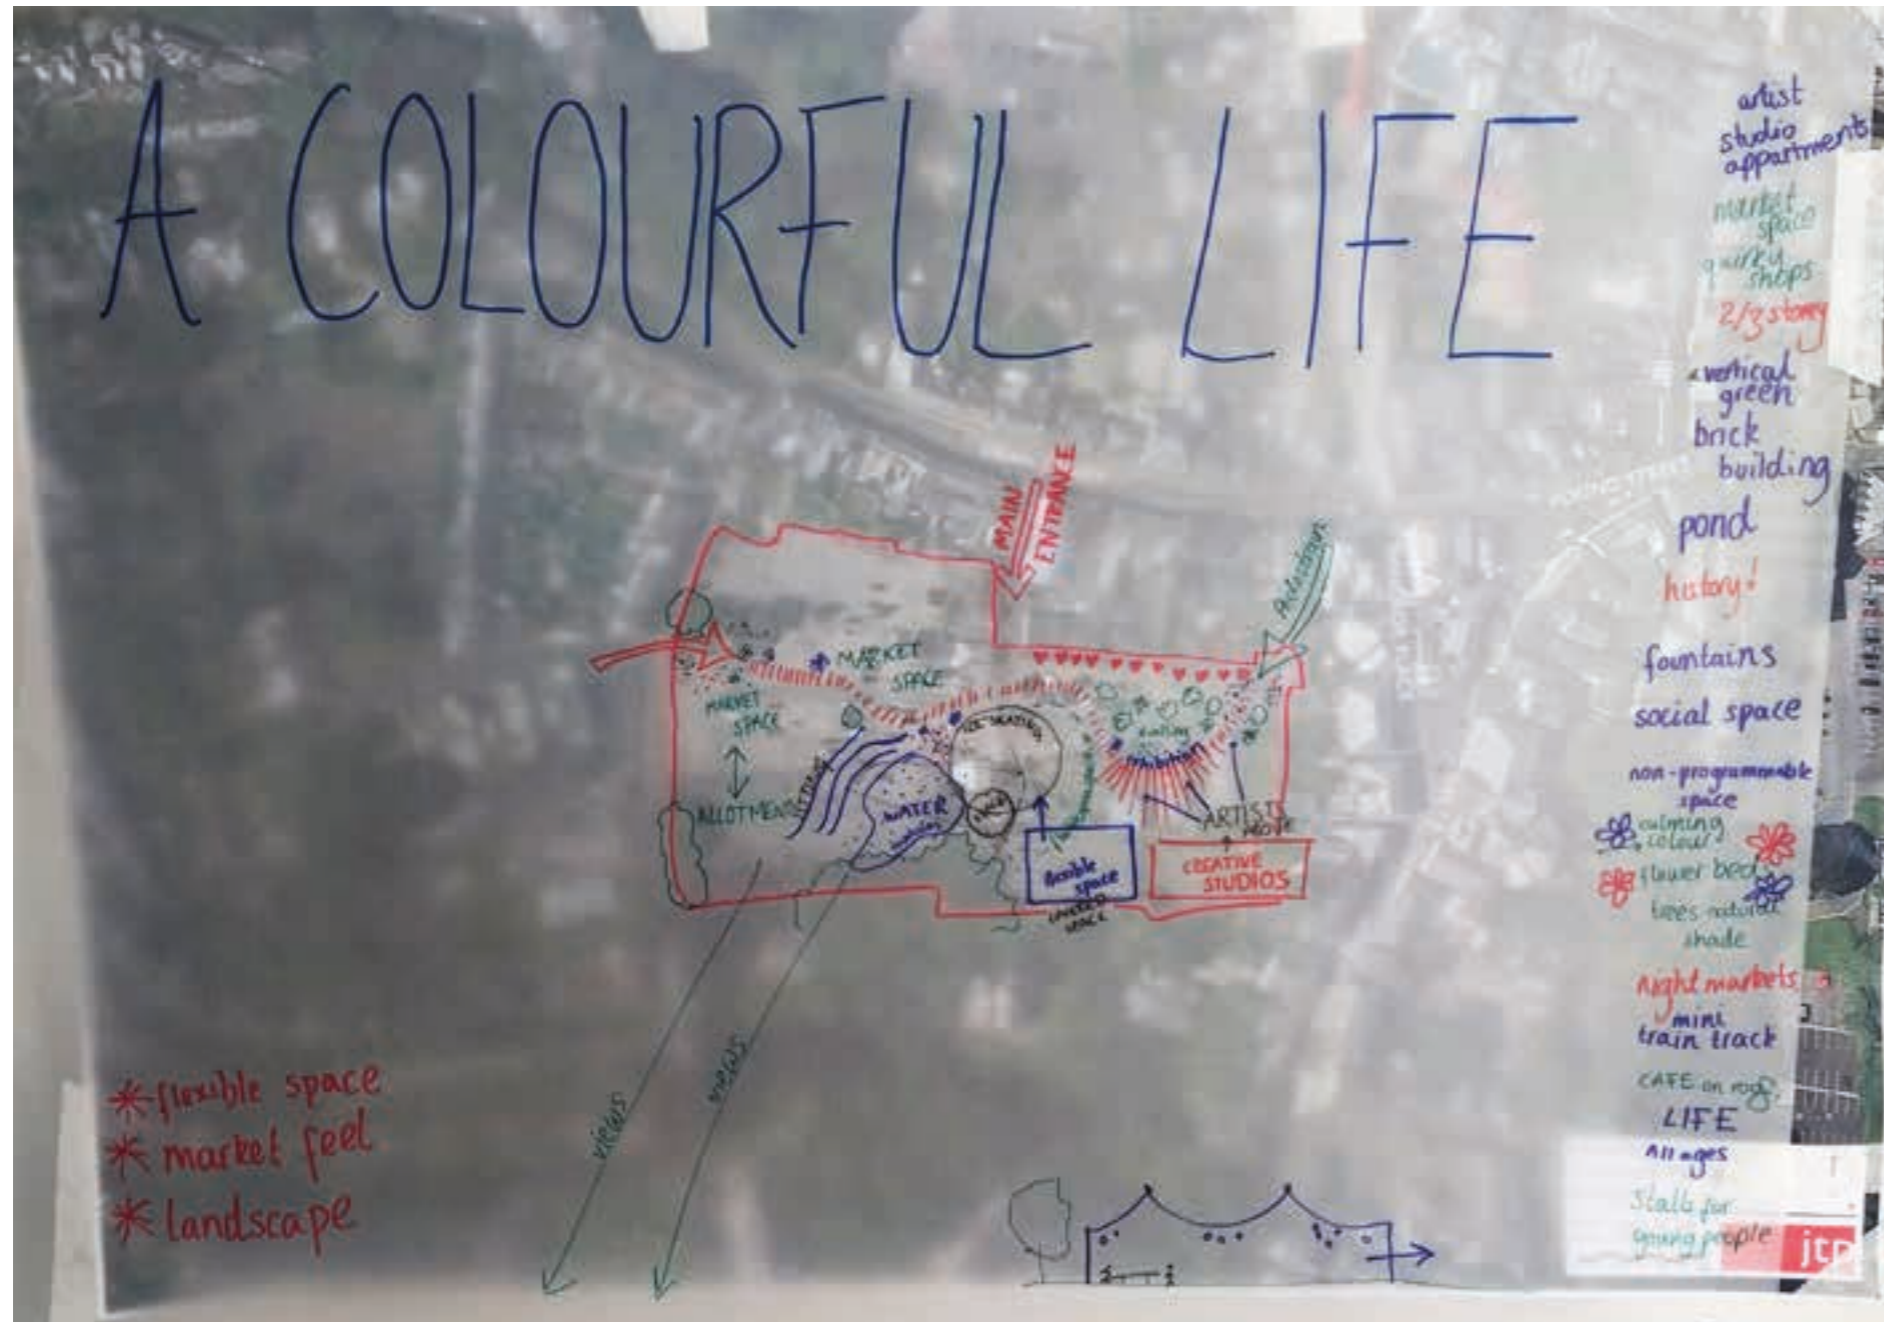 A COLOURFUL LIFE
artist
studio
appartments
market
space
quirky
shops
2/3 storey
vertical
green
brick
building
pond
history!
fountains
social space
non-programmable
space
calming
colour
flower beds
trees natural
shade
night markets
mini
train track
CAFE on roof?
LIFE
All ages
Stalls for
young people
jtp
MAIN
ENTRANCE
MARKET
SPACE
MARKET
SPACE
ALLOTMENT
WATER
exhibition
ARTIST
MOVE
flexible
space
COVERED
SPACE
CREATIVE
STUDIOS
views
views
* flexible space
* market feel
* landscape